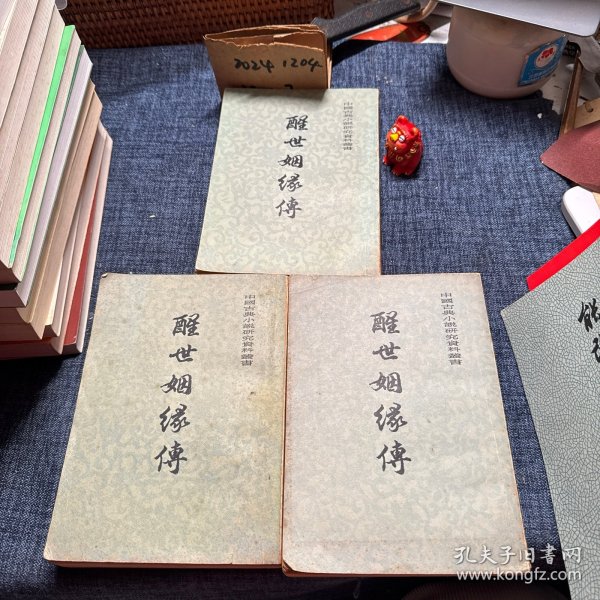 2024 1204
中國古典小說研究資料叢書
醒世姻緣傳
中國古典小說研究資料叢書
醒世姻緣傳
中國古典小說研究資料叢書
醒世姻緣傳
孔夫子旧書网
www.kongfz.com